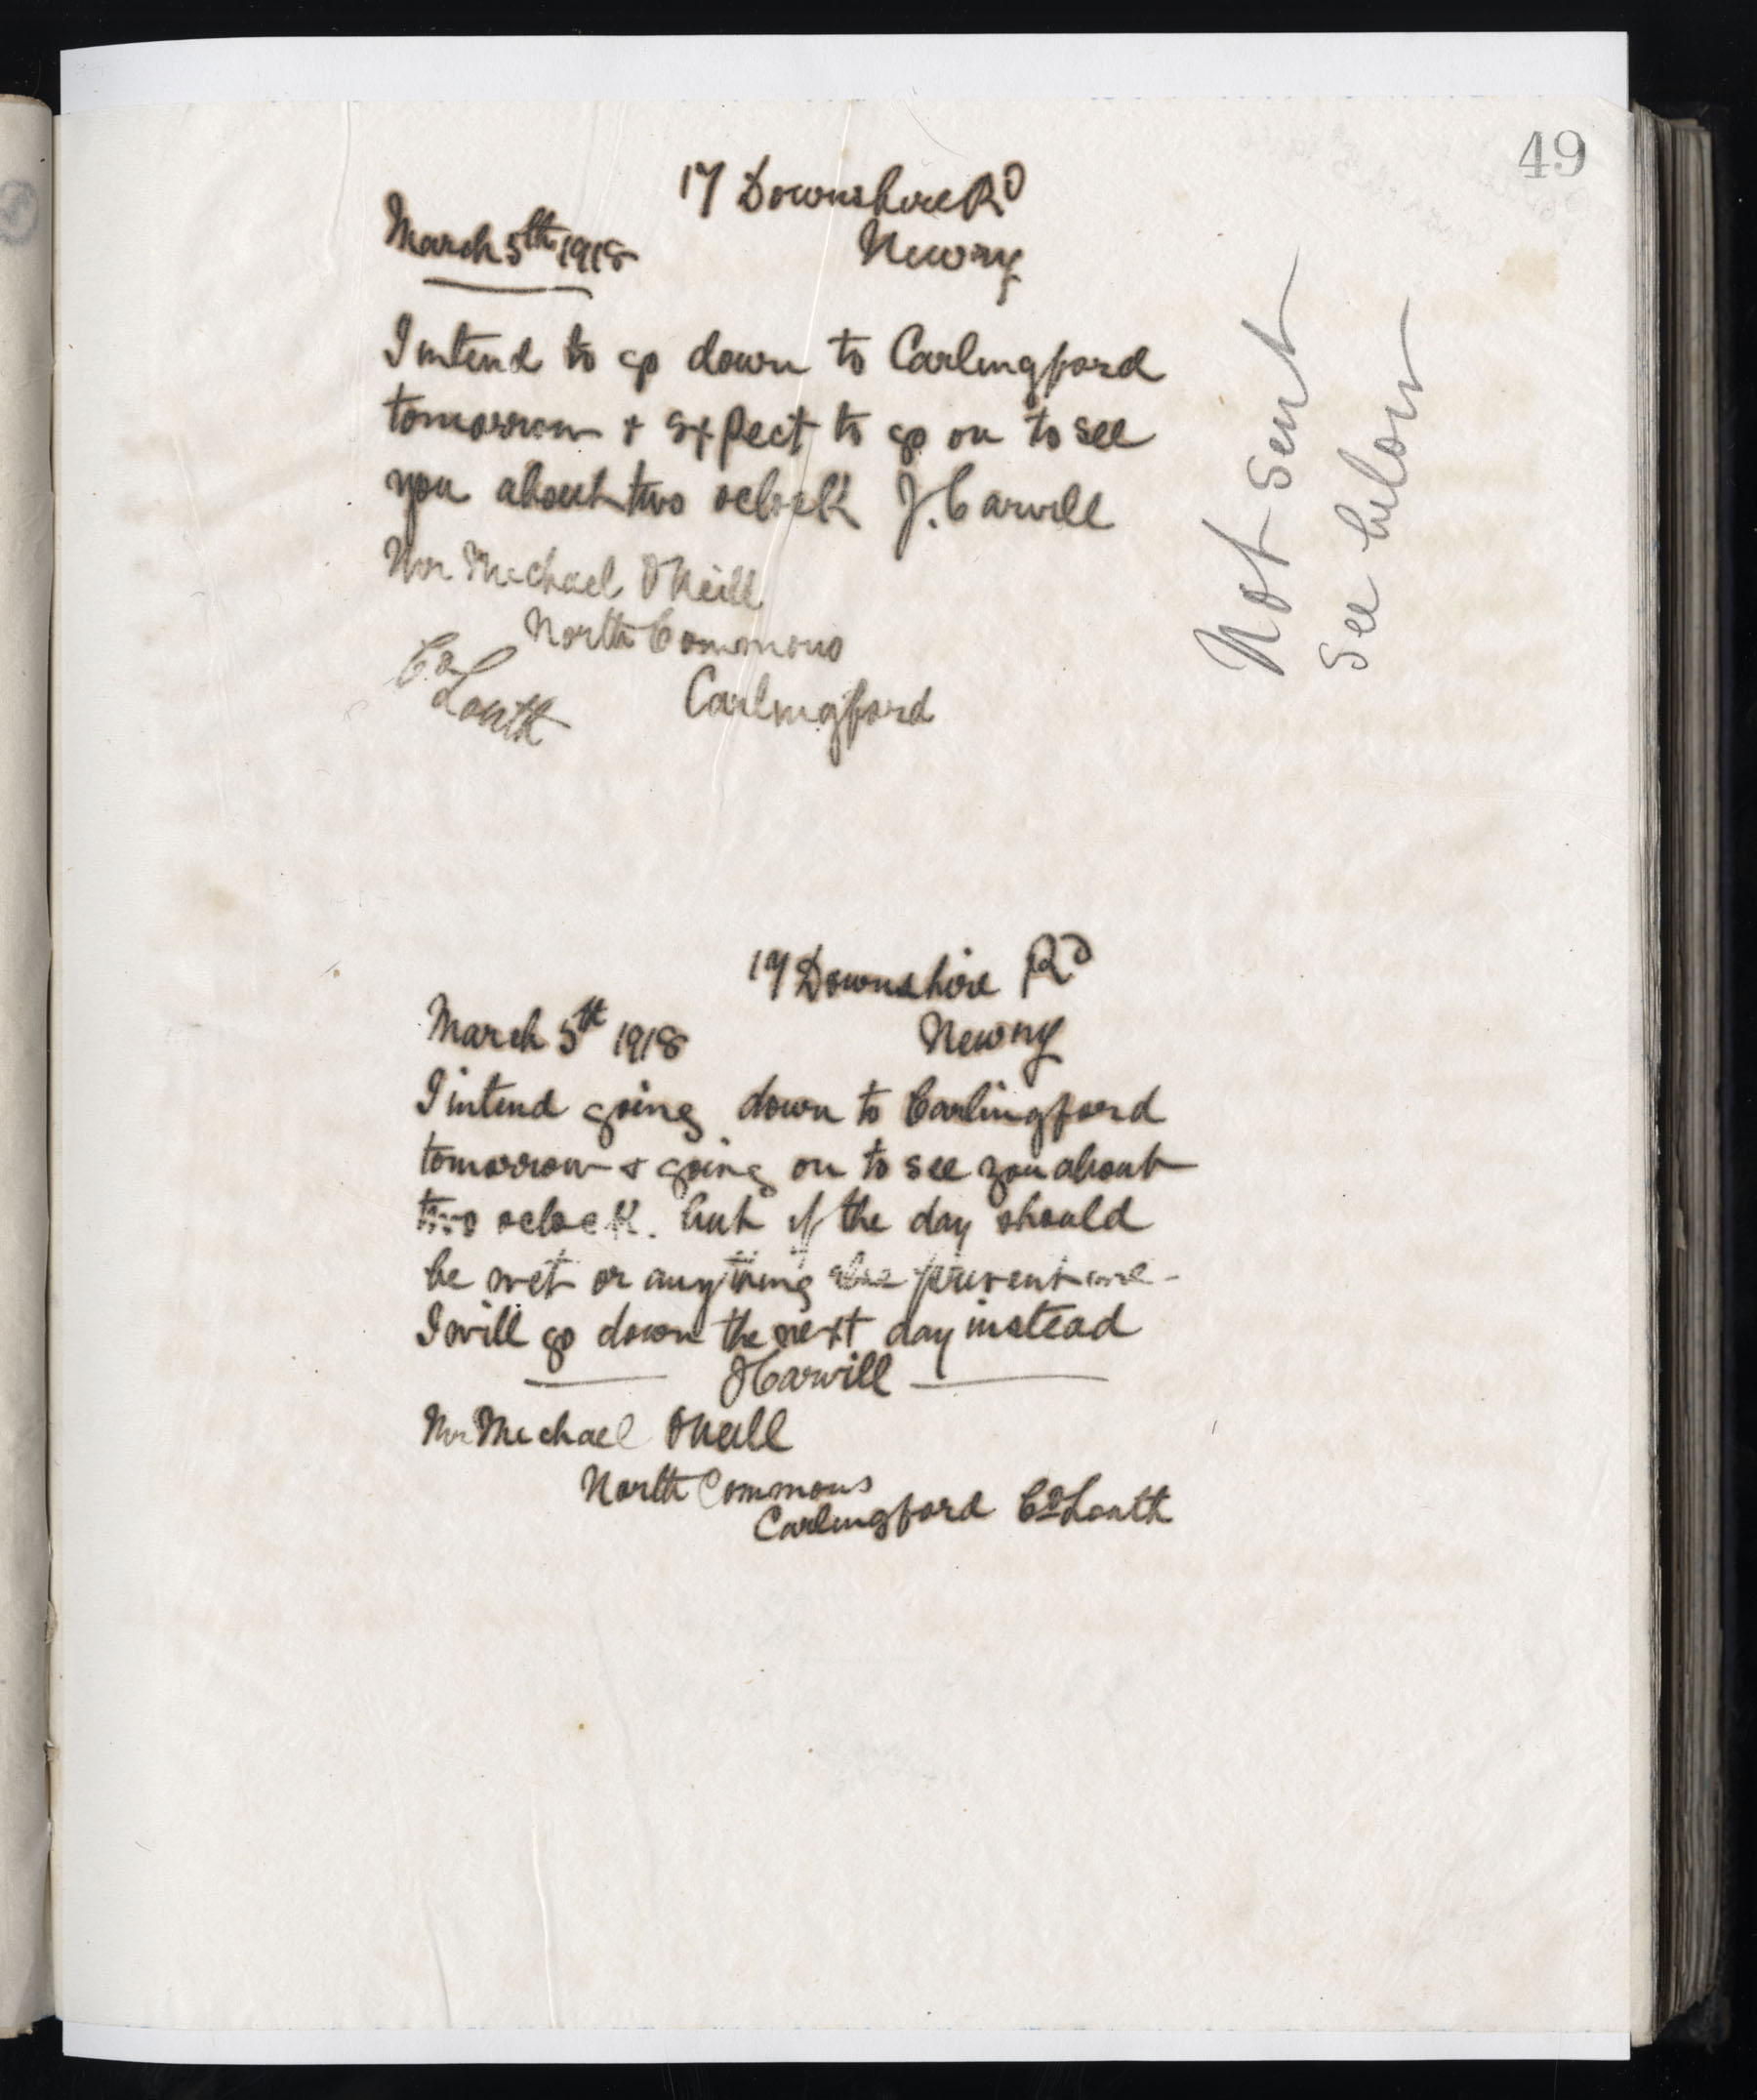 49
17 Downshire Rd
March 5th 1918 Newry
I intend to go down to Carlingford
tomorrow & expect to go on to see
you about two oclock J. Carvill
Mr Michael ONeill
North Commons
Co Louth Carlingford
Not sent
see below
17 Downshire Rd
March 5th 1918 Newry
I intend going down to Carlingford
tomorrow & going on to see you about
two oclock. but if the day should
be wet or anything else prevent me -
I will go down the next day instead
JCarvill
Mr Michael ONeill
North Commons
Carlingford Co Louth